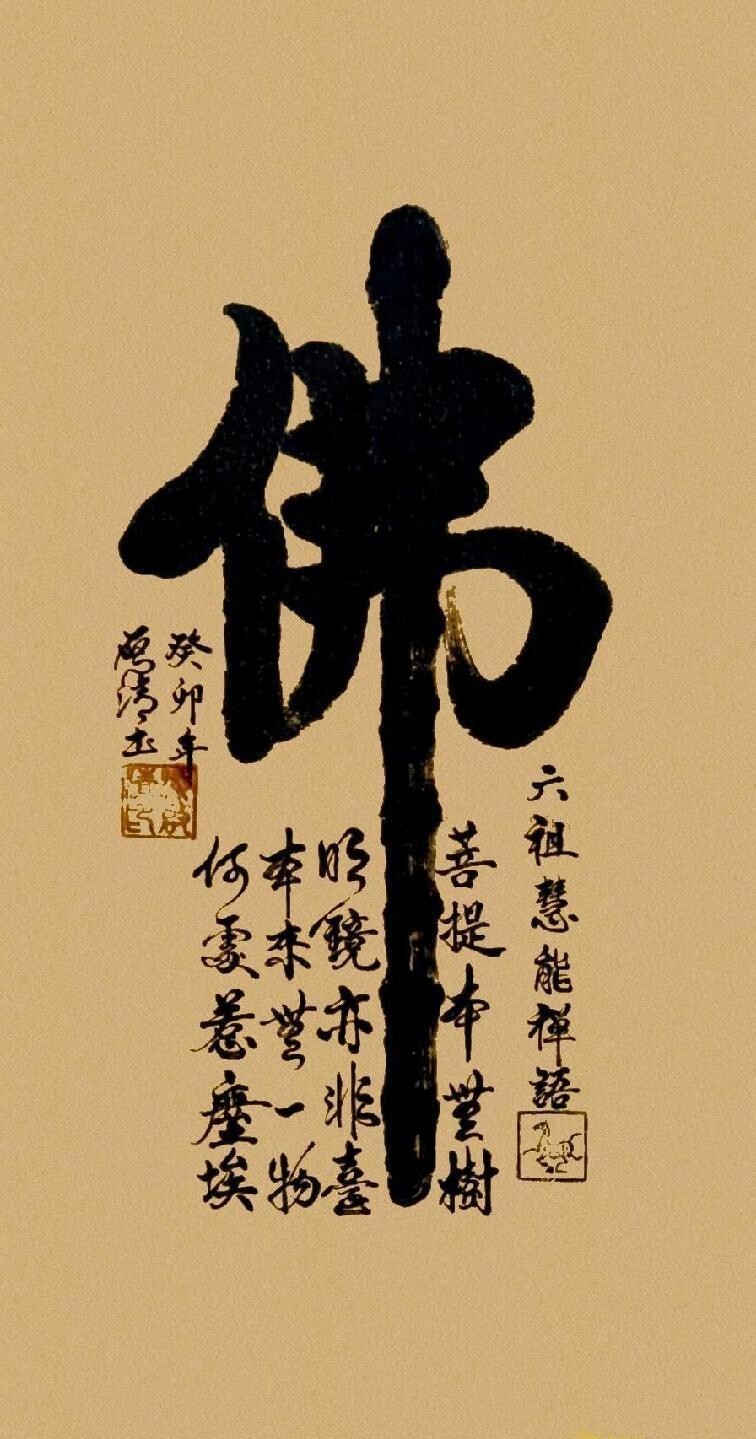 佛
六祖慧能禅語
菩提本無樹
明鏡亦非臺
本来無一物
何處惹塵埃
癸卯年
清书